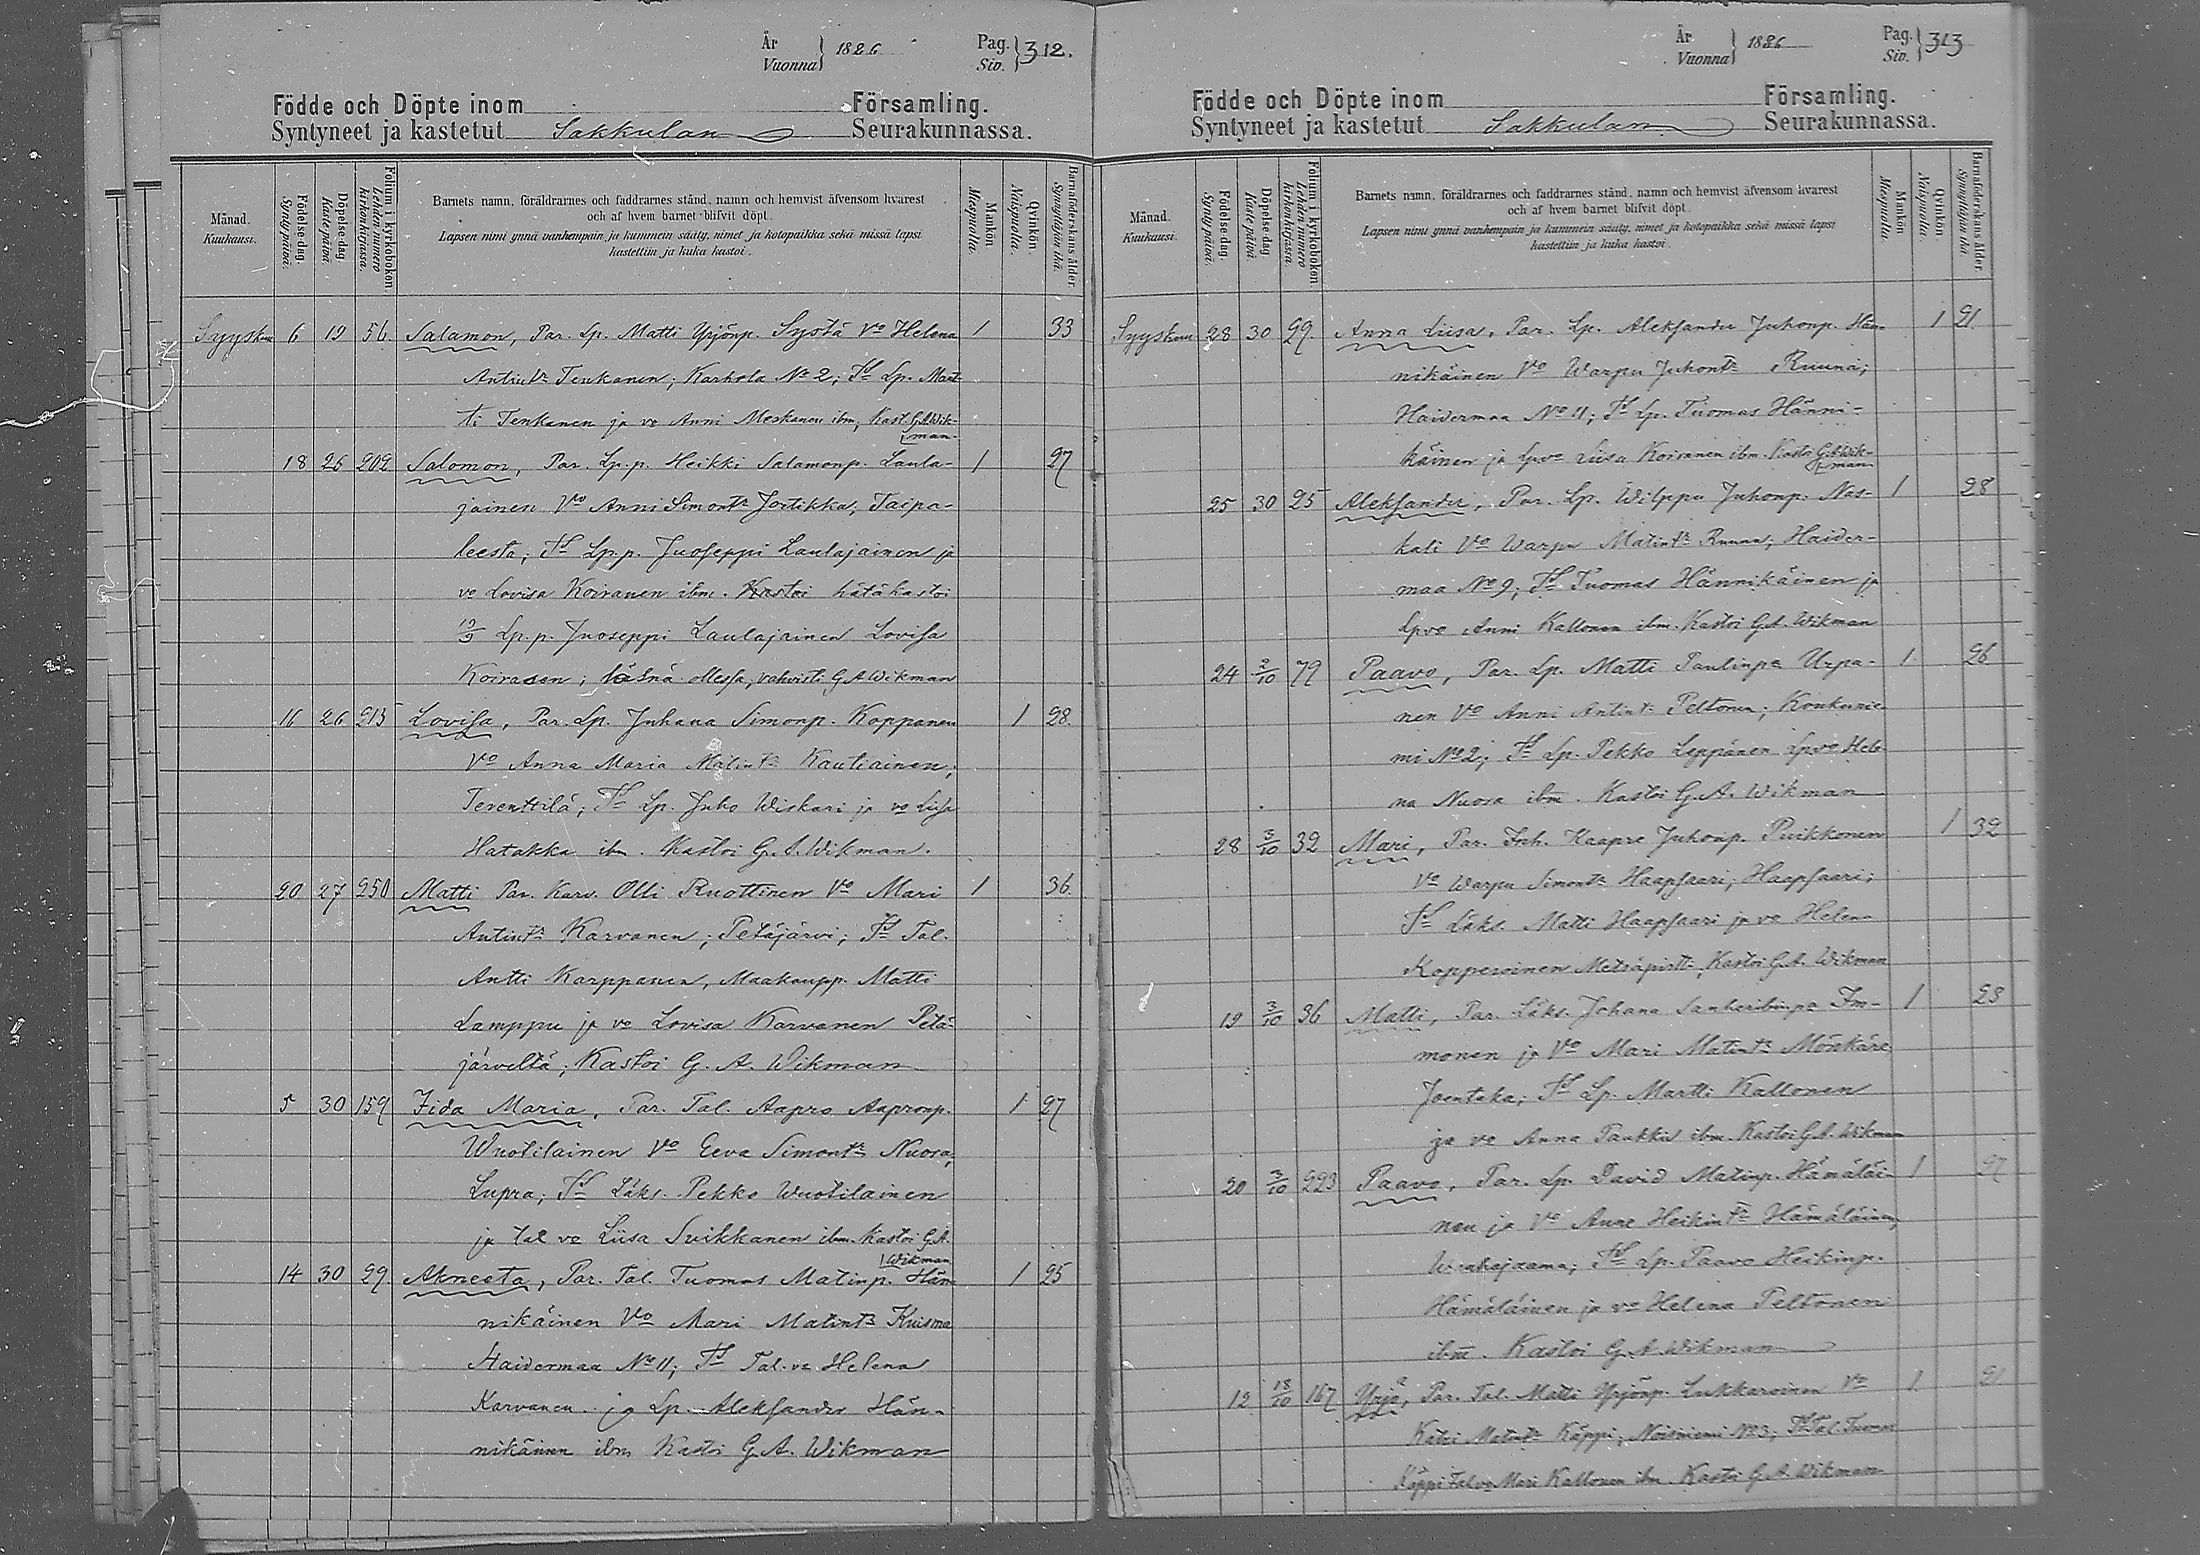 År
Vuonna } 1886
Pag.
Siv. } 312.
Födde och Döpte inom Församling.
Syntyneet ja kastetut Sakkulan Seurakunnassa.
Månad.
Kuukausi.
Födelse-dag.
Synty-päivä.
Döpelse-dag.
Kaste-päivä.
Folium i kyrkoboken.
Lehden numero kirkonkirjassa.
Barnets namn, föräldrarnes och faddrarnes stånd, namn och hemvist äfvensom hvarest
och af hvem barnet blifvit döpt.
Lapsen nimi ynnä vanhempain ja kummein sääty, nimet ja kotopaikka sekä missä lapsi
kastettiin ja kuka kastoi.
Mankön.
Miespuolia.
Qvinkön.
Naispuolia.
Barnaföderskans ålder.
Synnyttäjän ikä.
Syyskuu 6 19 56 Salamon, Par. Lp. Matti Yrjönp. Systä Vo Helena 1 33
Antintr Tenkanen; Karhola No 2; Td Lp. Mat-
ti Tenkanen ja vo Anni Meskanen ibm; Kast. G.A. Wik-
man.
18 26 202 Salomon, Par. Lp.p. Heikki Salamonp. Laula- 1 27
jainen Vo Anni Simontr Jortikka; Taipa-
leesta; Td Lp.p. Juoseppi Laulajainen ja
vo Lovisa Koiranen ibm. Kastoi hätäkastoi
19/9 Lp.p. Juoseppi Laulajainen Lovisa
Koirasen; läsnä ollessa, vahvisti G A Wikman
16 26 215 Lovisa, Par. Lp. Juhana Simonp. Koppanen 1 28.
Vo Anna Maria Matintr Kautiainen;
Terenttilä; Td Lp. Juho Wiskari ja vo Liisa
Hatakka ibm. Kastoi G. A. Wikman.
20 27 250 Matti Par. Kars. Olli Ruottinen Vo Mari 1 36.
Antintr Karvanen; Petäjärvi; Td Tal.
Antti Karppanen, Maakaupp. Matti
Lamppu ja vo Lovisa Karvanen Petä-
järveltä; Kastoi G. A. Wikman
5 30 159 Iida Maria, Par. Tal. Aapro Aapronp. 1 27
Wuotilainen Vo Eeva Simontr Nuora;
Lupra; Td Läks. Pekko Wuotilainen
ja tal vo Liisa Suikkanen ibm. Kastoi G A.
Wikman
14 30 29 Akneeta, Par. Tal. Tuomas Matinp. Hän- 1 25
nikäinen Vo Mari Matintr Kuisma
Haidermaa No 11; Td Tal. vo Helena
Karvanen ja Lp. Aleksander Hän-
nikäinen ibm Kastoi G. A. Wikman
År
Vuonna } 1886
Pag.
Siv. } 313
Födde och Döpte inom Församling.
Syntyneet ja kastetut Sakkulan Seurakunnassa.
Månad.
Kuukausi.
Födelse-dag.
Synty-päivä.
Döpelse-dag.
Kaste-päivä.
Folium i kyrkoboken.
Lehden numero kirkonkirjassa.
Barnets namn, föräldrarnes och faddrarnes stånd, namn och hemvist äfvensom hvarest
och af hvem barnet blifvit döpt.
Lapsen nimi ynnä vanhempain ja kummein sääty, nimet ja kotopaikka sekä missä lapsi
kastettiin ja kuka kastoi.
Mankön.
Miespuolia.
Qvinkön.
Naispuolia.
Barnaföderskans ålder.
Synnyttäjän ikä.
Syyskuu 28 30 29. Anna Liisa, Par. Lp. Aleksander Juhonp. Hän- 1 21
nikäinen Vo Warpu Juhontr Ruuna;
Haidermaa No 11; Td Lp. Tuomas Hänni-
käinen ja Lp vo Liisa Koiranen ibm. Kastoi G.A. Wik-
man
25 30 25 Aleksander, Par. Lp. Wilppu Juhonp. Nas- 1 28
kali Vo Warpu Matintr Ruuna; Haider-
maa No 9; Td Tuomas Hännikäinen ja
Lp vo Anni Kallonen ibm. Kastoi G.A. Wikman
24 2/10 79 Paavo, Par. Lp. Matti Paulinpa Urpa- 1 26
nen Vo Anni Antintr Peltonen; Konkunie-
mi No 2; Td Lp. Pekko Leppänen Lp vo Hele-
na Nuora ibm. Kastoi G. A. Wikman
28 3/10 32 Mari, Par. Inh. Kaapre Juhonp. Puikkonen 1 32
Vo Warpu Simontr Haapsaari; Haapsaari;
Td Läks. Matti Haapsaari ja vo Helena
Kopperoinen Metsäpirtti; Kastoi G.A. Wikman
19 3/10 36 Matti, Par. Läks. Johana Im- 1 23
monen ja Vo Mari Matintr Mönkäre
Joentaka; Td Lp. Martti Kallonen
ja vo Anna Paukku ibm. Kastoi G.A. Wikman
20 3/10 223 Paavo, Par. Lp. David Matinp. Hämäläi- 1 27
nen ja Vo Anne Heikintr Hämäläinen,
Td Lp. Paavo Heikinp.
Hämäläinen ja vo Helena Peltonen
ibm. Kastoi G. A. Wikman
12 18/10 167 Yrjö, Par. Tal. Matti Yrjönp. Lukkaroinen Vo 1 21
Katri Matintr Käppi; Noisniemi No 3; Td Tal. Tuomas
Käppi Tal vo Mari Kallonen ibm. Kastoi G A Wikman